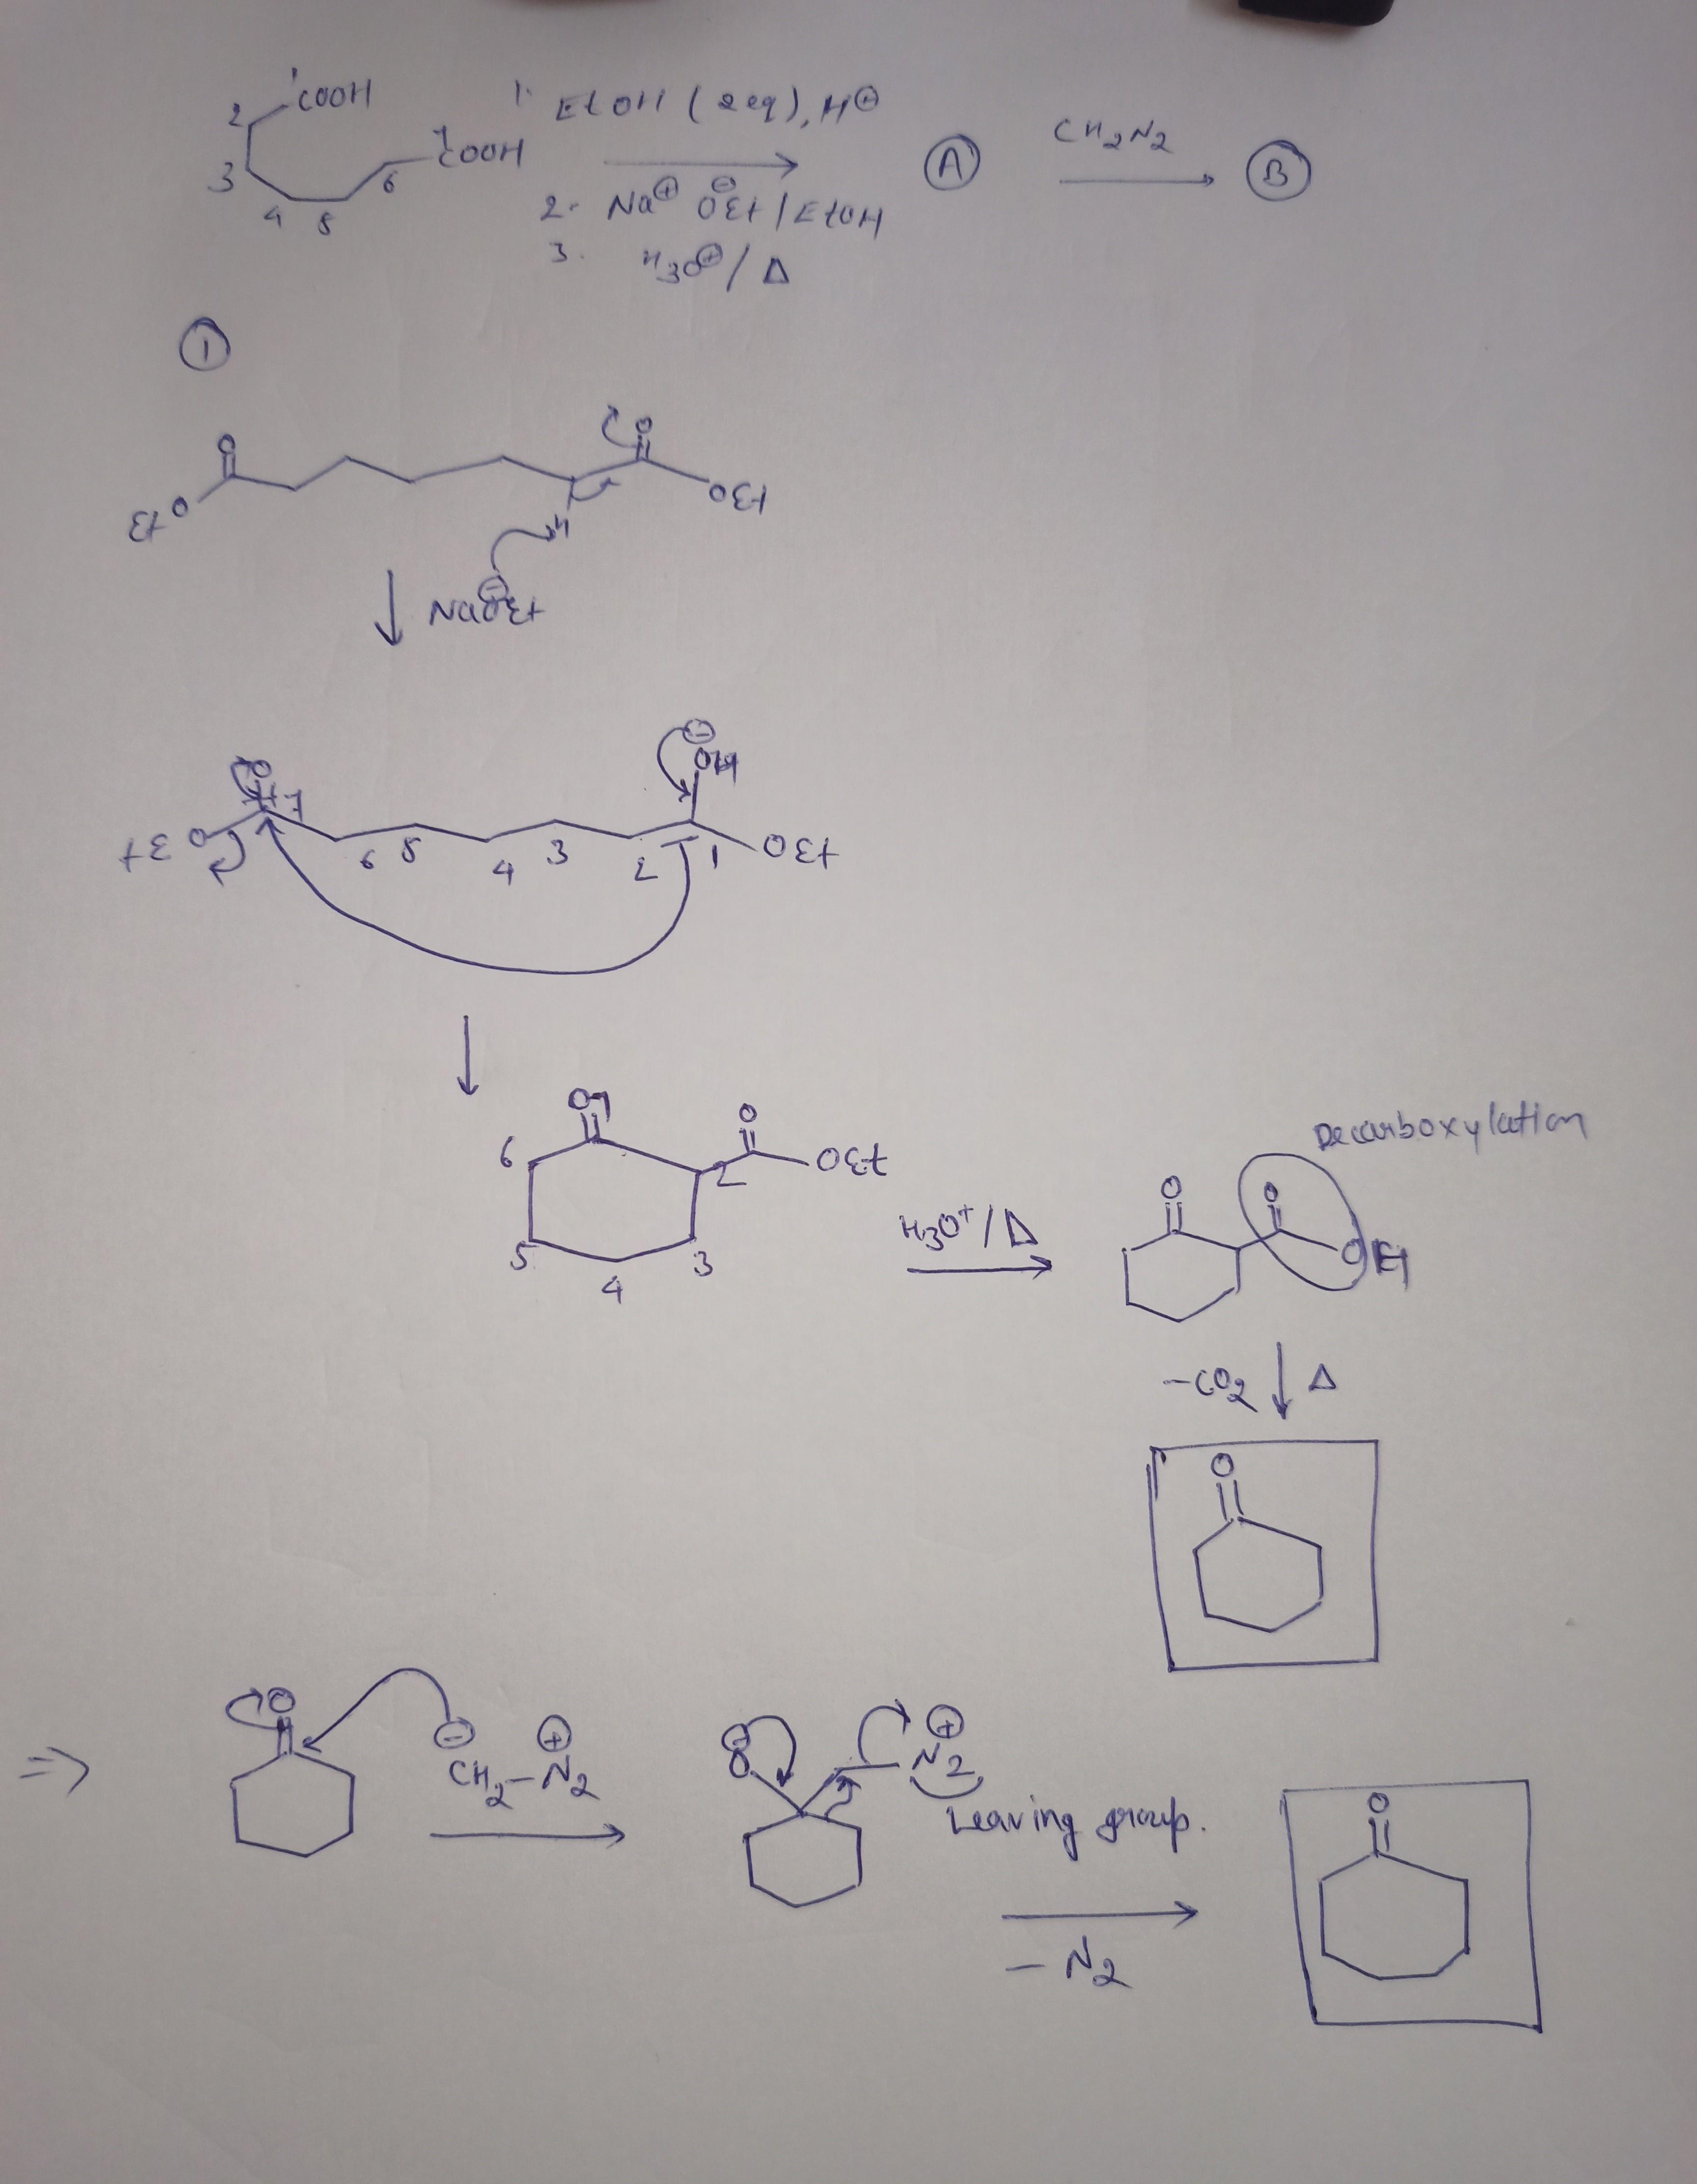 1 COOH
2
7 COOH
3
6
4 5
1. EtOH (2eq), H⊕
2. Na⊕ ⊖OEt / EtOH
3. H3O⊕ / Δ
A
CH2N2
B
1
O O
EtO OEt
H
⊖
NaOEt
⊖
O
7
EtO 6 5 4 3 2 1 OEt
O 7 O
6 2 OEt
5 4 3
H3O+ / Δ
Decarboxylation
O O
O
-CO2 Δ
O
⇒
O ⊖ ⊕
CH2-N2
⊖ ⊕
O N2
Leaving group.
- N2
O